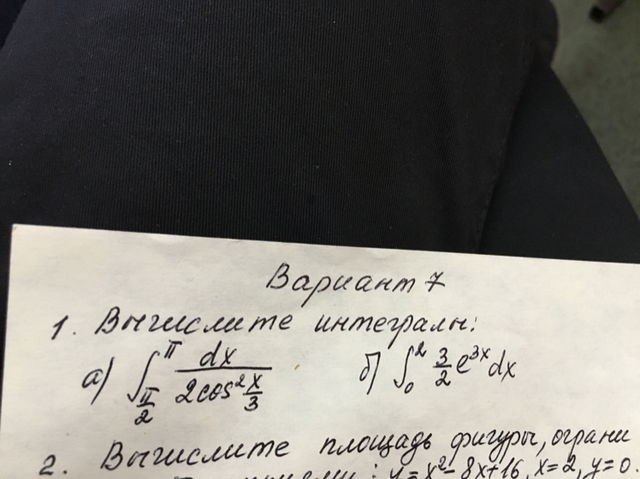 Вариант 7
1. Вычислите интегралы:
а) ∫_{π/2}^{π} dx / (2cos² x/3) б) ∫_0^2 3/2 e^{3x} dx
2. Вычислите площадь фигуры, ограни
: y = x² - 8x + 16, x = 2, y = 0.